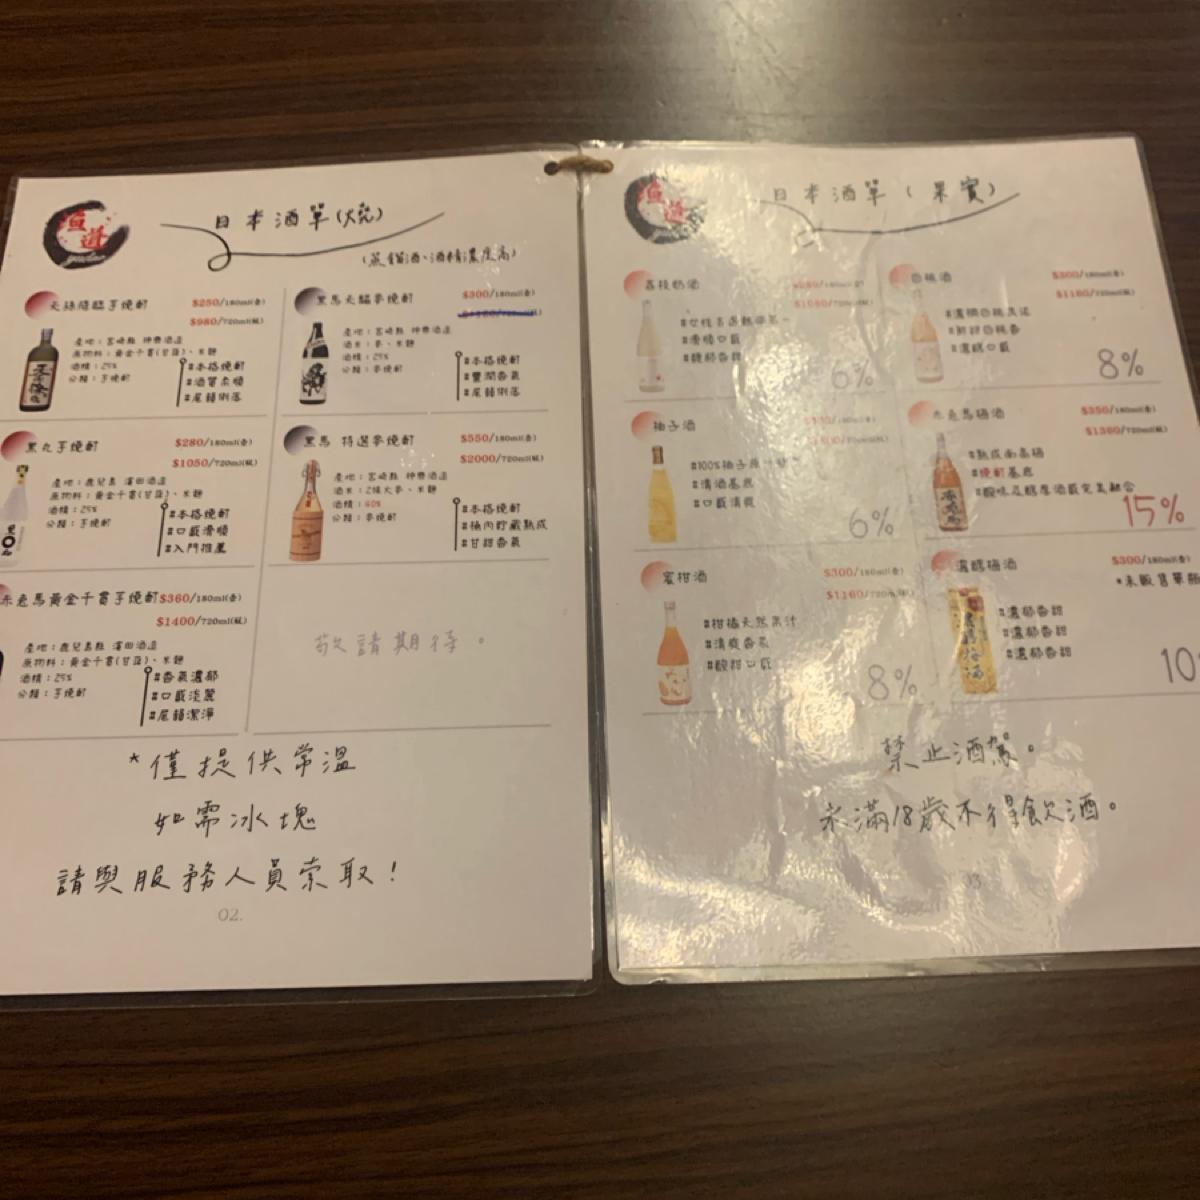 日本酒單(燒)
(蒸餾酒、酒精濃度高)
天孫降臨芋燒酎
$250/180ml(壺)
$980/720ml(瓶)
產地：宮崎縣 神樂酒造
原物料：黃金千貫(甘藷)、米麴
酒精：25%
分類：芋燒酎
#本格燒酎
#酒質柔順
#尾韻俐落
黑馬 麥燒酎
$300/180ml(壺)
產地：宮崎縣 神樂酒造
酒米：麥、米麴
酒精：25%
分類：麥燒酎
#本格燒酎
#豐潤香氣
#尾韻俐落
黑丸芋燒酎
$280/180ml(壺)
$1050/720ml(瓶)
產地：鹿兒島 濱田酒造
原物料：黃金千貫(甘藷)、米麴
酒精：25%
分類：芋燒酎
#本格燒酎
#口感滑順
#入門推薦
黑馬 特選麥燒酎
$550/180ml(壺)
$2000/720ml(瓶)
產地：宮崎縣 神樂酒造
酒米：2條大麥、米麴
酒精：40%
分類：麥燒酎
#本格燒酎
#桶內貯藏熟成
#甘甜香氣
赤兔馬黃金千貫芋燒酎
$360/180ml(壺)
$1400/720ml(瓶)
產地：鹿兒島縣 濱田酒造
原物料：黃金千貫(甘藷)、米麴
酒精：25%
分類：芋燒酎
#香氣濃郁
#口感淡麗
#尾韻潔淨
敬請期待。
*僅提供常溫
如需冰塊
請與服務人員索取！
02.
日本酒單(果實)
荔枝奶酒
#滑順口感
#馥郁香甜
6%
白桃酒
$300/180ml(壺)
$1160/720ml(瓶)
#鮮甜白桃香
#濃醇口感
8%
柚子酒
#清酒基底
#口感清爽
6%
赤兔馬梅酒
$350/180ml(壺)
$1360/720ml(瓶)
#熟成南高梅
#燒酎基底
#酸味及醇厚酒感完美融合
15%
蜜柑酒
$300/180ml(壺)
$1160/720ml(瓶)
#柑橘天然果汁
#清爽香氣
#酸甜口感
8%
濃醇梅酒
$300/180ml(壺)
*未販售單瓶
#濃郁香甜
#濃郁香甜
#濃郁香甜
禁止酒駕。
未滿18歲不得飲酒。
03